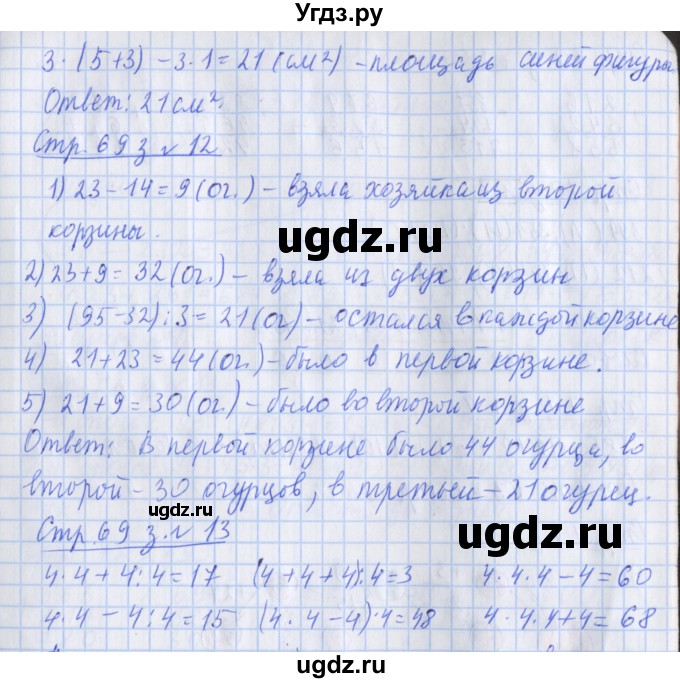 Угдз.ру
3·(5+3) – 3·1 = 21 (см²) – площадь синей фигуры
Ответ: 21 см².
Стр. 69 з. № 12
1) 23 – 14 = 9 (ог.) – взяла хозяйка из второй
корзины.
ugdz.ru
2) 23 + 9 = 32 (ог.) – взяла из двух корзин
3) (95 – 32) : 3 = 21 (ог) – остался в каждой корзине
4) 21 + 23 = 44 (ог.) – было в первой корзине.
5) 21 + 9 = 30 (ог.) – было во второй корзине
Ответ: В первой корзине было 44 огурца, во
второй – 30 огурцов, в третьей – 21 огурец.
ugdz.ru
Стр. 69 з. № 13
4·4 + 4:4 = 17 (4+4+4):4 = 3 4·4·4 – 4 = 60
4·4 – 4:4 = 15 (4·4–4)·4 = 48 4·4·4+4 = 68
ugdz.ru